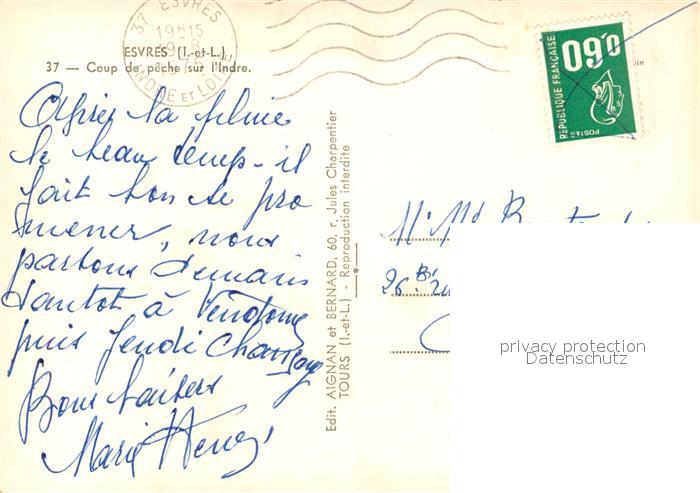 37 ESVRES
19H15
INDRE ET LOIRE
ESVRES (I.-et-L.)
37 — Coup de pêche sur l'Indre.
0,60
REPUBLIQUE FRANÇAISE
POSTES
Après la pluie
le beau temps - il
fait bon se pro
mener, nous
partons demain
tantot à Vendome
puis Jeudi
Bons baisers
Marie
Edit. AIGNAN et BERNARD, 60, r. Jules Charpentier
TOURS (I.-et-L.) - Reproduction interdite
26 Bis
privacy protection
Datenschutz